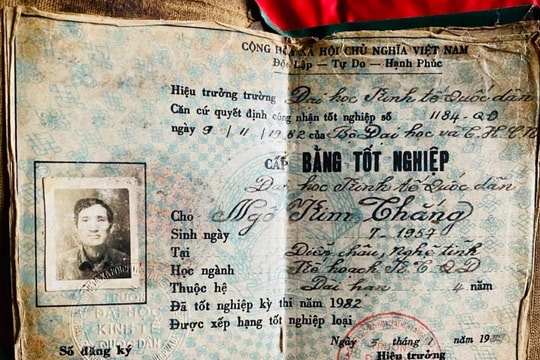 CỘNG HÒA XÃ HỘI CHỦ NGHĨA VIỆT NAM
Độc Lập — Tự Do — Hạnh Phúc
Hiệu trưởng trường Đại học Kinh tế Quốc dân
Căn cứ quyết định công nhận tốt nghiệp số 1184-QĐ
ngày 9/11/1982 của Bộ Đại học và T.H.C.N
CẤP BẰNG TỐT NGHIỆP
Đại học Kinh tế Quốc dân
Cho Ngô Kim Thăng
Sinh ngày 7-1957
Tại Diễn châu, Nghệ tĩnh
Học ngành Kế hoạch K.T.Q.D
Thuộc hệ Dài hạn 4 năm
Đã tốt nghiệp kỳ thi năm 1982
Được xếp hạng tốt nghiệp loại
Ngày 5 tháng 1
Số đăng ký
Hiệu trưởng
TRƯỜNG
ĐẠI HỌC
KINH TẾ